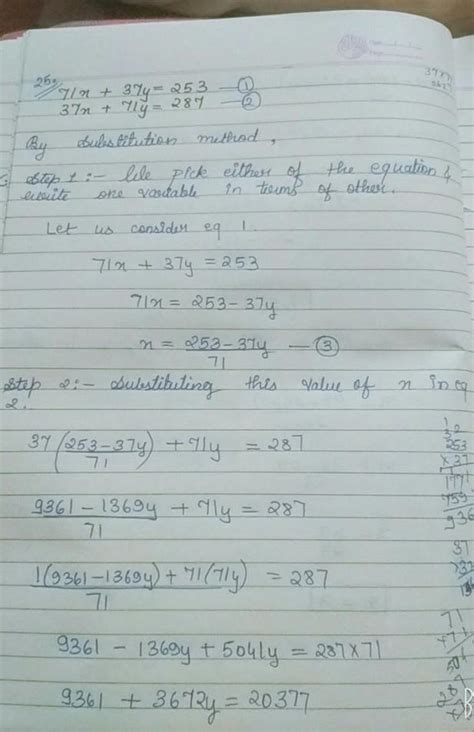 25.
71x + 37y = 253 — ①
37x + 71y = 287 — ②
By substitution method,
Step 1 :- We pick either of the equation &
write one variable in terms of other.
Let us consider eq 1.
71x + 37y = 253
71x = 253 - 37y
x = 253 - 37y / 71 — ③
Step 2 :- Substituting this value of x in eq
2.
37 (253 - 37y / 71) + 71y = 287
9361 - 1369y / 71 + 71y = 287
1(9361 - 1369y) + 71(71y) / 71 = 287
9361 - 1369y + 5041y = 287 × 71
9361 + 3672y = 20377
253
× 37
1771